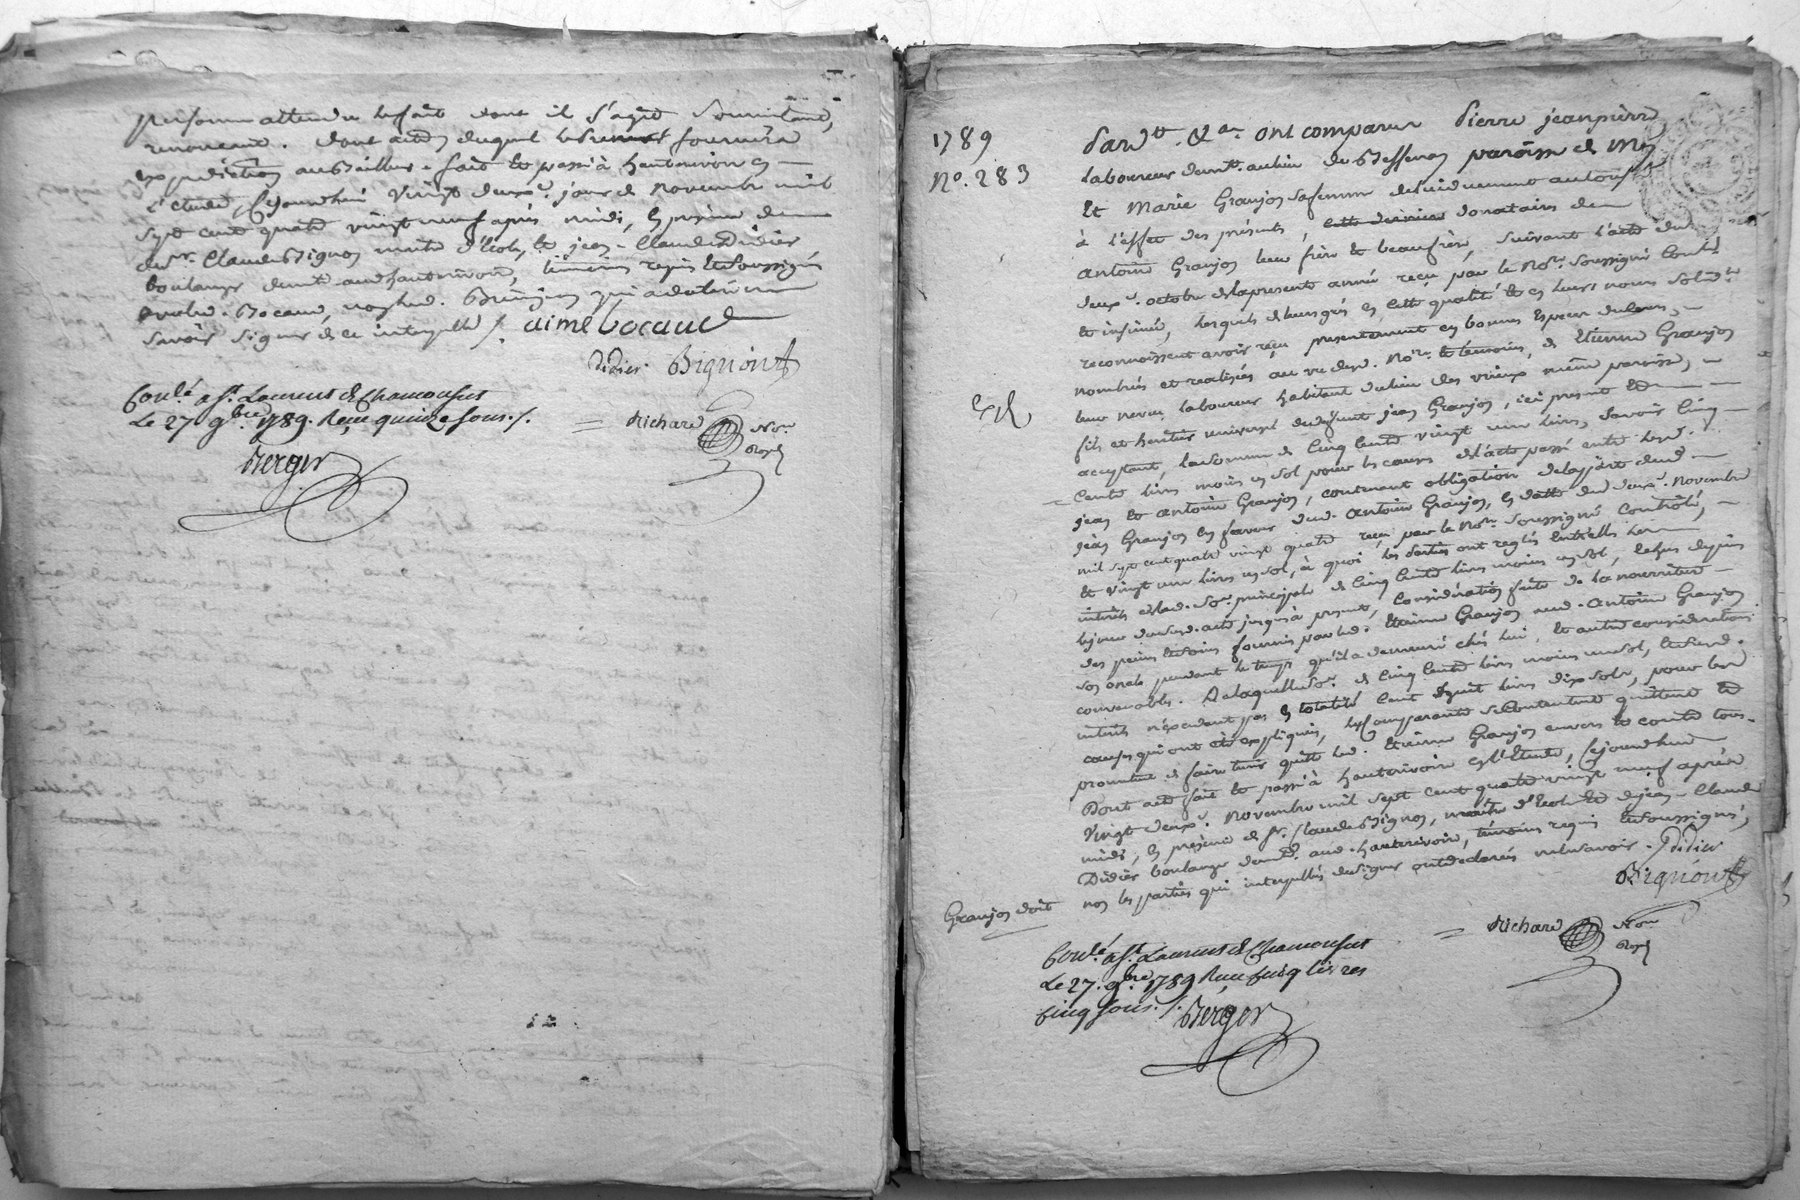 personne attendu le fait dont il s'agit
renonceant. dont acte, duquel le preneur fournira
expedition au bailleur. fait et passé à hauterivoire en
l'étude, cejourdhui vingt deuxe. jour de Novembre mil
sept cent quatre vingt neuf après midi, en présence de
sr. Claude Bignon maitre d'Ecole, et jean-Claude Didier
boulanger demt. aud hauterivoire, témoins requis et soussignés
avec led. Bocaud, non led. qui a declaré ne
savoir signer de ce interpellé /. aimé bocaud
Didier. Bignon
Conlé. a St. Laurent de Chamousset
Le 27 9bre. 1789. Reçu quinze sous./.
= Richard Nore.
Royal
Berger
1789
No. 283
Pardt. &a. ont comparu Pierre jeanpierre
laboureur demt. au lieu de paroisse de
Et Marie Granjon sa femme de lui duement autorisée
à l'effet des présentes, cette derniere donataire de
Antoine Granjon leur frère et beaufrère, suivant l'acte du
deuxe. octobre de la presente année reçu par le Nore. soussigné Conllé.
et insinué, lesquels de leurs grés en cette qualité et en leurs noms solidt.
reconnoissent avoir reçu presentement en bonnes Especes de cours,
nombrées et realisées au vu dud. Nore. et témoins, de Etienne Granjon
leur neveu laboureur habitant du lieu des vieux même paroisse,
fils et heritier universel de defunt jean Granjon, ici present et
acceptant, la somme de Cinq Cents vingt une livres, savoir Cinq
Cents livres moins un sol pour les causes de l'acte passé entre lesd.
jean et antoine Granjon, contenant obligation de la part dud
jean Granjon en faveur dud. antoine Granjon, en datte du deuxe. Novembre
mil sept cent quatre vingt quatre reçu par le Nore. soussigné Contrôlé,
et vingt une livres un sol, à quoi les parties ont reglés Entr'elles les
interets de lad. Soe. principale de Cinq Cents livres moins un sol, Echus depuis
le jour dud. acte jusqu'à present, Consideration faite de la nourriture
des peines et soins fournis par led. Etienne Granjon aud. Antoine Granjon
son oncle pendant le temps qu'il a demeuré chés lui, et autres considerations
convenables. De laquelle soe. de Cinq Cents livres moins un sol, et
interets n'excedent pas en totalité Cent livres dix sols, pour les
causes qui ont été expliquées, les Comparants se Contentent quittent et
promettent de faire tenir quitte led. Etienne Granjon envers et contre tous.
Dont acte fait et passé à hauterivoire en l'Etude, Cejourdhui
Vingt deuxe. Novembre mil sept cent quatre vingt neuf après
midi, en présence de Sr. Claude Bignon, maitre d'Ecole et de jean-Claude
Didier boulanger demt. aud. hauterivoire, témoins requis et soussignés,
non les parties qui interpellées de signer ont declarées ne le savoir. Didier
Bignon
Granjon doit
= Richard Nore.
Royal
Conlé. a St. Laurent de Chamousset
Le 27. 9bre. 1789 Reçu Cinq livres
Cinq sous./. Berger